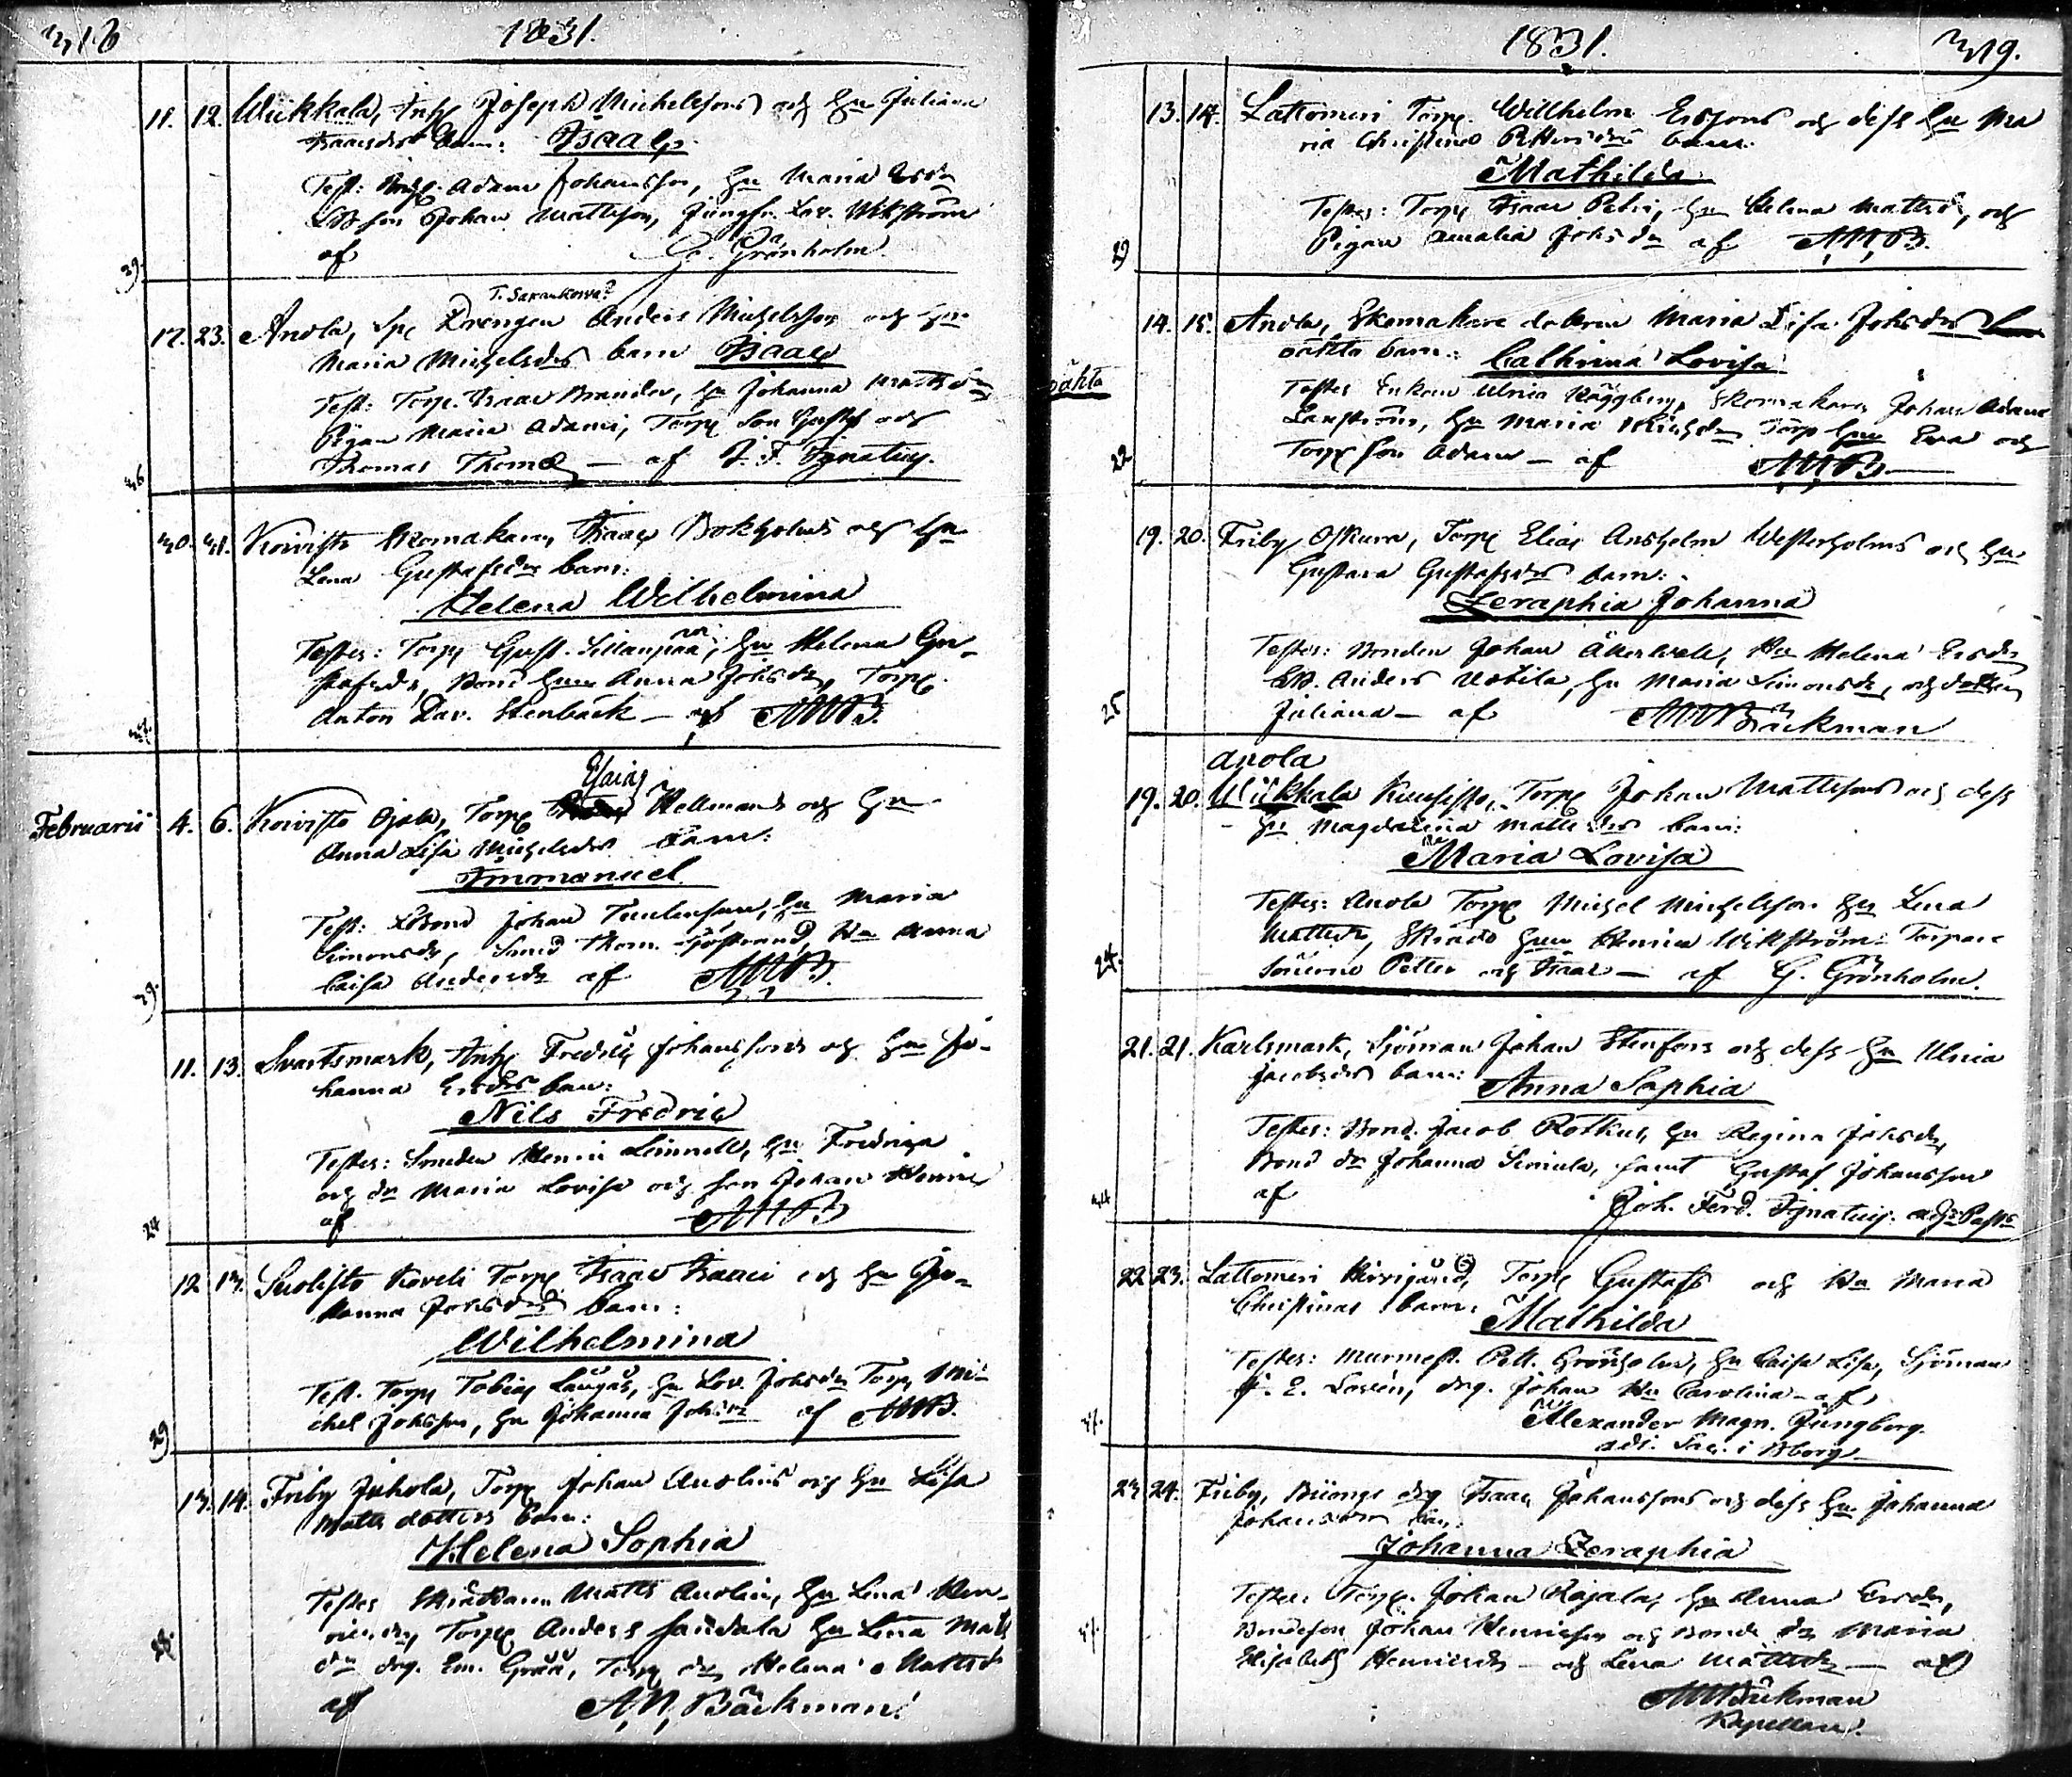 318
1831.
11. 12. Wiikkala, Inhs Joseph Michelssons och hu Juliana
Isaacsdrs barn: Isaac
Test: Adam Johansson, hu Maria Ersdr
son Johan Mattsson, Jungfr. Lov. Wikström
39. af G. Grönholm
T. Sarankowa?
17. 23. Anola, Sp. Drengen Anders Michelsson och hu
Maria Michelsdrs barn Isaac
Test: Torp. Isaac Brander, hu Johanna Mattsdr
Pigan Maria Adami, Torp Son Gustaf och
36 Thomas Thomæ — af J. F. Ignatius.
30. 31. Koivisto Skomakare Isaac Bokholms och hu
Lena Gustafsdrs barn:
Helena Wilhelmina
Testes: Torp Gust. Sillanpää, hu Helena Gu-
stafsdr, Bond hust Anna Johsdr, Torp.
Anton Dav. Stenbäck — af AMB.
Esaias
Februarii 4. 6. Koivisto Ojala, Torp Hellmans och hu
Anna Lisa Michelsdrs barn:
Immanuel
Test: Johan Tuulensuu, hu Maria
Simonsdr, Smed Thom. Sjöstrand, Hu Anna
39. Caisa Andersdr af AMB.
11. 13. Svartsmark, Inhs Fredric Johanssons och hu Jo-
hanna Ersdrs barn:
Nils Fredric
Testes: Smeden Henric Linnell, hu Fredrica
och dr Maria Lovisa och son Johan Henric
24 af AMB
12 13. Suolisto Koveli Torp Isaac Isaaci och hu Jo-
hanna Johsdrs barn:
Wilhelmina
Test. Torp Tobias Laugas, hu Lov. Johsdr Torp Mi-
29 chel Johsson, hu Johanna Johsdr af AMB.
13. 14. Friby Juhola, Torp Johan Anolins och hu Lisa
Matts dotters barn:
Helena Sophia
Testes Skräddaren Matts Anolin, hu Lena Hen-
ricsdr, Torp Anders Sandala hu Lena Matts
28. dr drg. Em. Gråå, Torp dr Helena Mattsd
af A. M. Bäckman.
1831.
319.
13. 14. Lattomeri Torp. Willhelm Erssons och dess hu Ma
ria Christina Pettersdrs barn:
Mathilda
Testes: Torp Isaac Petri, hu Helena Mattsdr, och
29 Pigan Amalia Johsdr af AMB.
14. 15. Anola, Skomakare dotren Maria Lisa Johsdrs
oäkta oäkta barn: Cathrina Lovisa
Testes Enkan Ulrica Häggberg, Skomakare Johan Adam
Lanström, hu Maria Michsdr Torp hust Eva och
22 Torp son Adam — af AMB
19. 20. Friby Oskura, Torp Elias Anshelm Westerholms och hu
Gustava Gustafsdrs barn:
Zeraphia Johanna
Testes: Bonden Johan Åkerwall, Hu Helena Ersdr
Anders Uotila, hu Maria Simonsdr, och dottren
25 Juliana — af AMBäckman
Anola
19. 20. Wiikkala Kuusisto, Torp Johan Mattssons och dess
hu Magdalena Mattsdrs barn:
Maria Lovisa
Testes: Anola Torp Michel Michelsson hu Lena
Mattsdr, Skrädd hust Henrica Wikström: Torpare
24. sönerne Petter och Isaac — af G. Grönholm.
21. 21. Karlsmark, Sjöman Johan Stenfors och dess hu Ulrica
Jacobsdrs barn: Anna Sophia
Testes: Bond. Jacob Rotkus, hu Regina Johsdr,
Bond dr Johanna Simula, samt Gustaf Johansson
44 af Joh. Ferd. Ignatius.
22 23. Lattomeri Torp Gustafs och Hu Maria
Christinas barn: Mathilda
Testes: Murmest. Pett. Grönholm, hu Caisa Lisa, Sjöman
E. Loven, drg. Johan Hu Carolina - af
Alexander Magn. Ljungberg.
adj. Sac. i Bborg
23 24. Friby, Büongs drg Isaac Johanssons och dess hu Johanna
Johansdrs barn:
Johanna Zeraphia
Testes: Torp. Johan Rajala, hu Anna Ersdr,
Bondeson Johan Henricsson och Bonde dr Maria
Elisabeth Henricsdr — och Lena Mattsdr — af
AMBäckman
Kapellan.